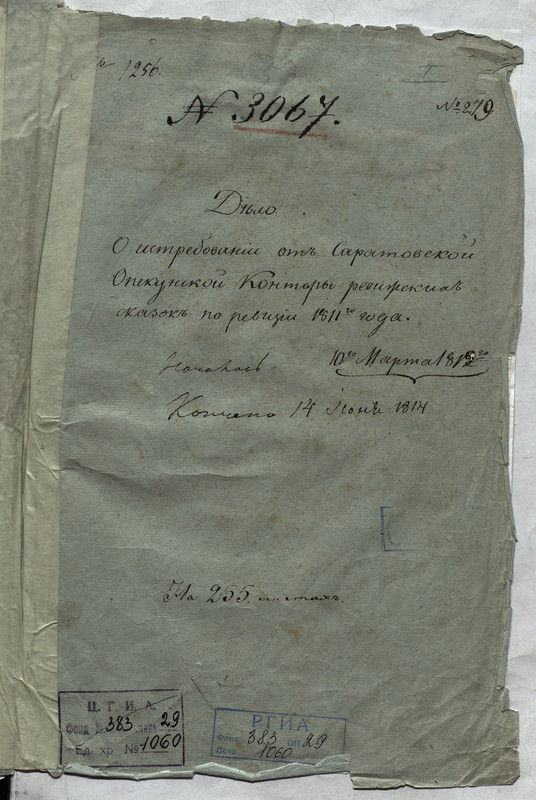 1256.
№ 3067.
№ 279
Дѣло
О истребованіи отъ Саратовской
Опекунской Конторы ревижскихъ
сказокъ по ревизіи 1811го года.
Началось 10го Марта
Кончено 14 1814
На 255. листахъ.
Ц. Г. И. А.
Фонд № 383 опись 29
Ед. хр. № 1060
РГИА
Фонд 383 оп 29
Дело 1060